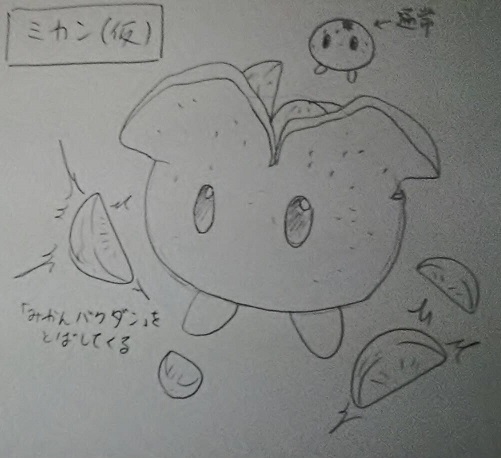 ミカン(仮)
←通常
「みかんバクダン」を
とばしてくる